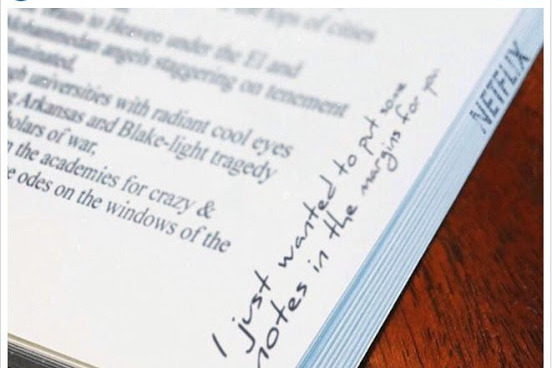 the tops of cities
to Heaven under the El and
Mohammedan angels staggering on tenement
universities with radiant cool eyes
Arkansas and Blake-light tragedy
of war,
the academies for crazy &
odes on the windows of the
I just wanted to put some
notes in the margins for you
NETFLIX